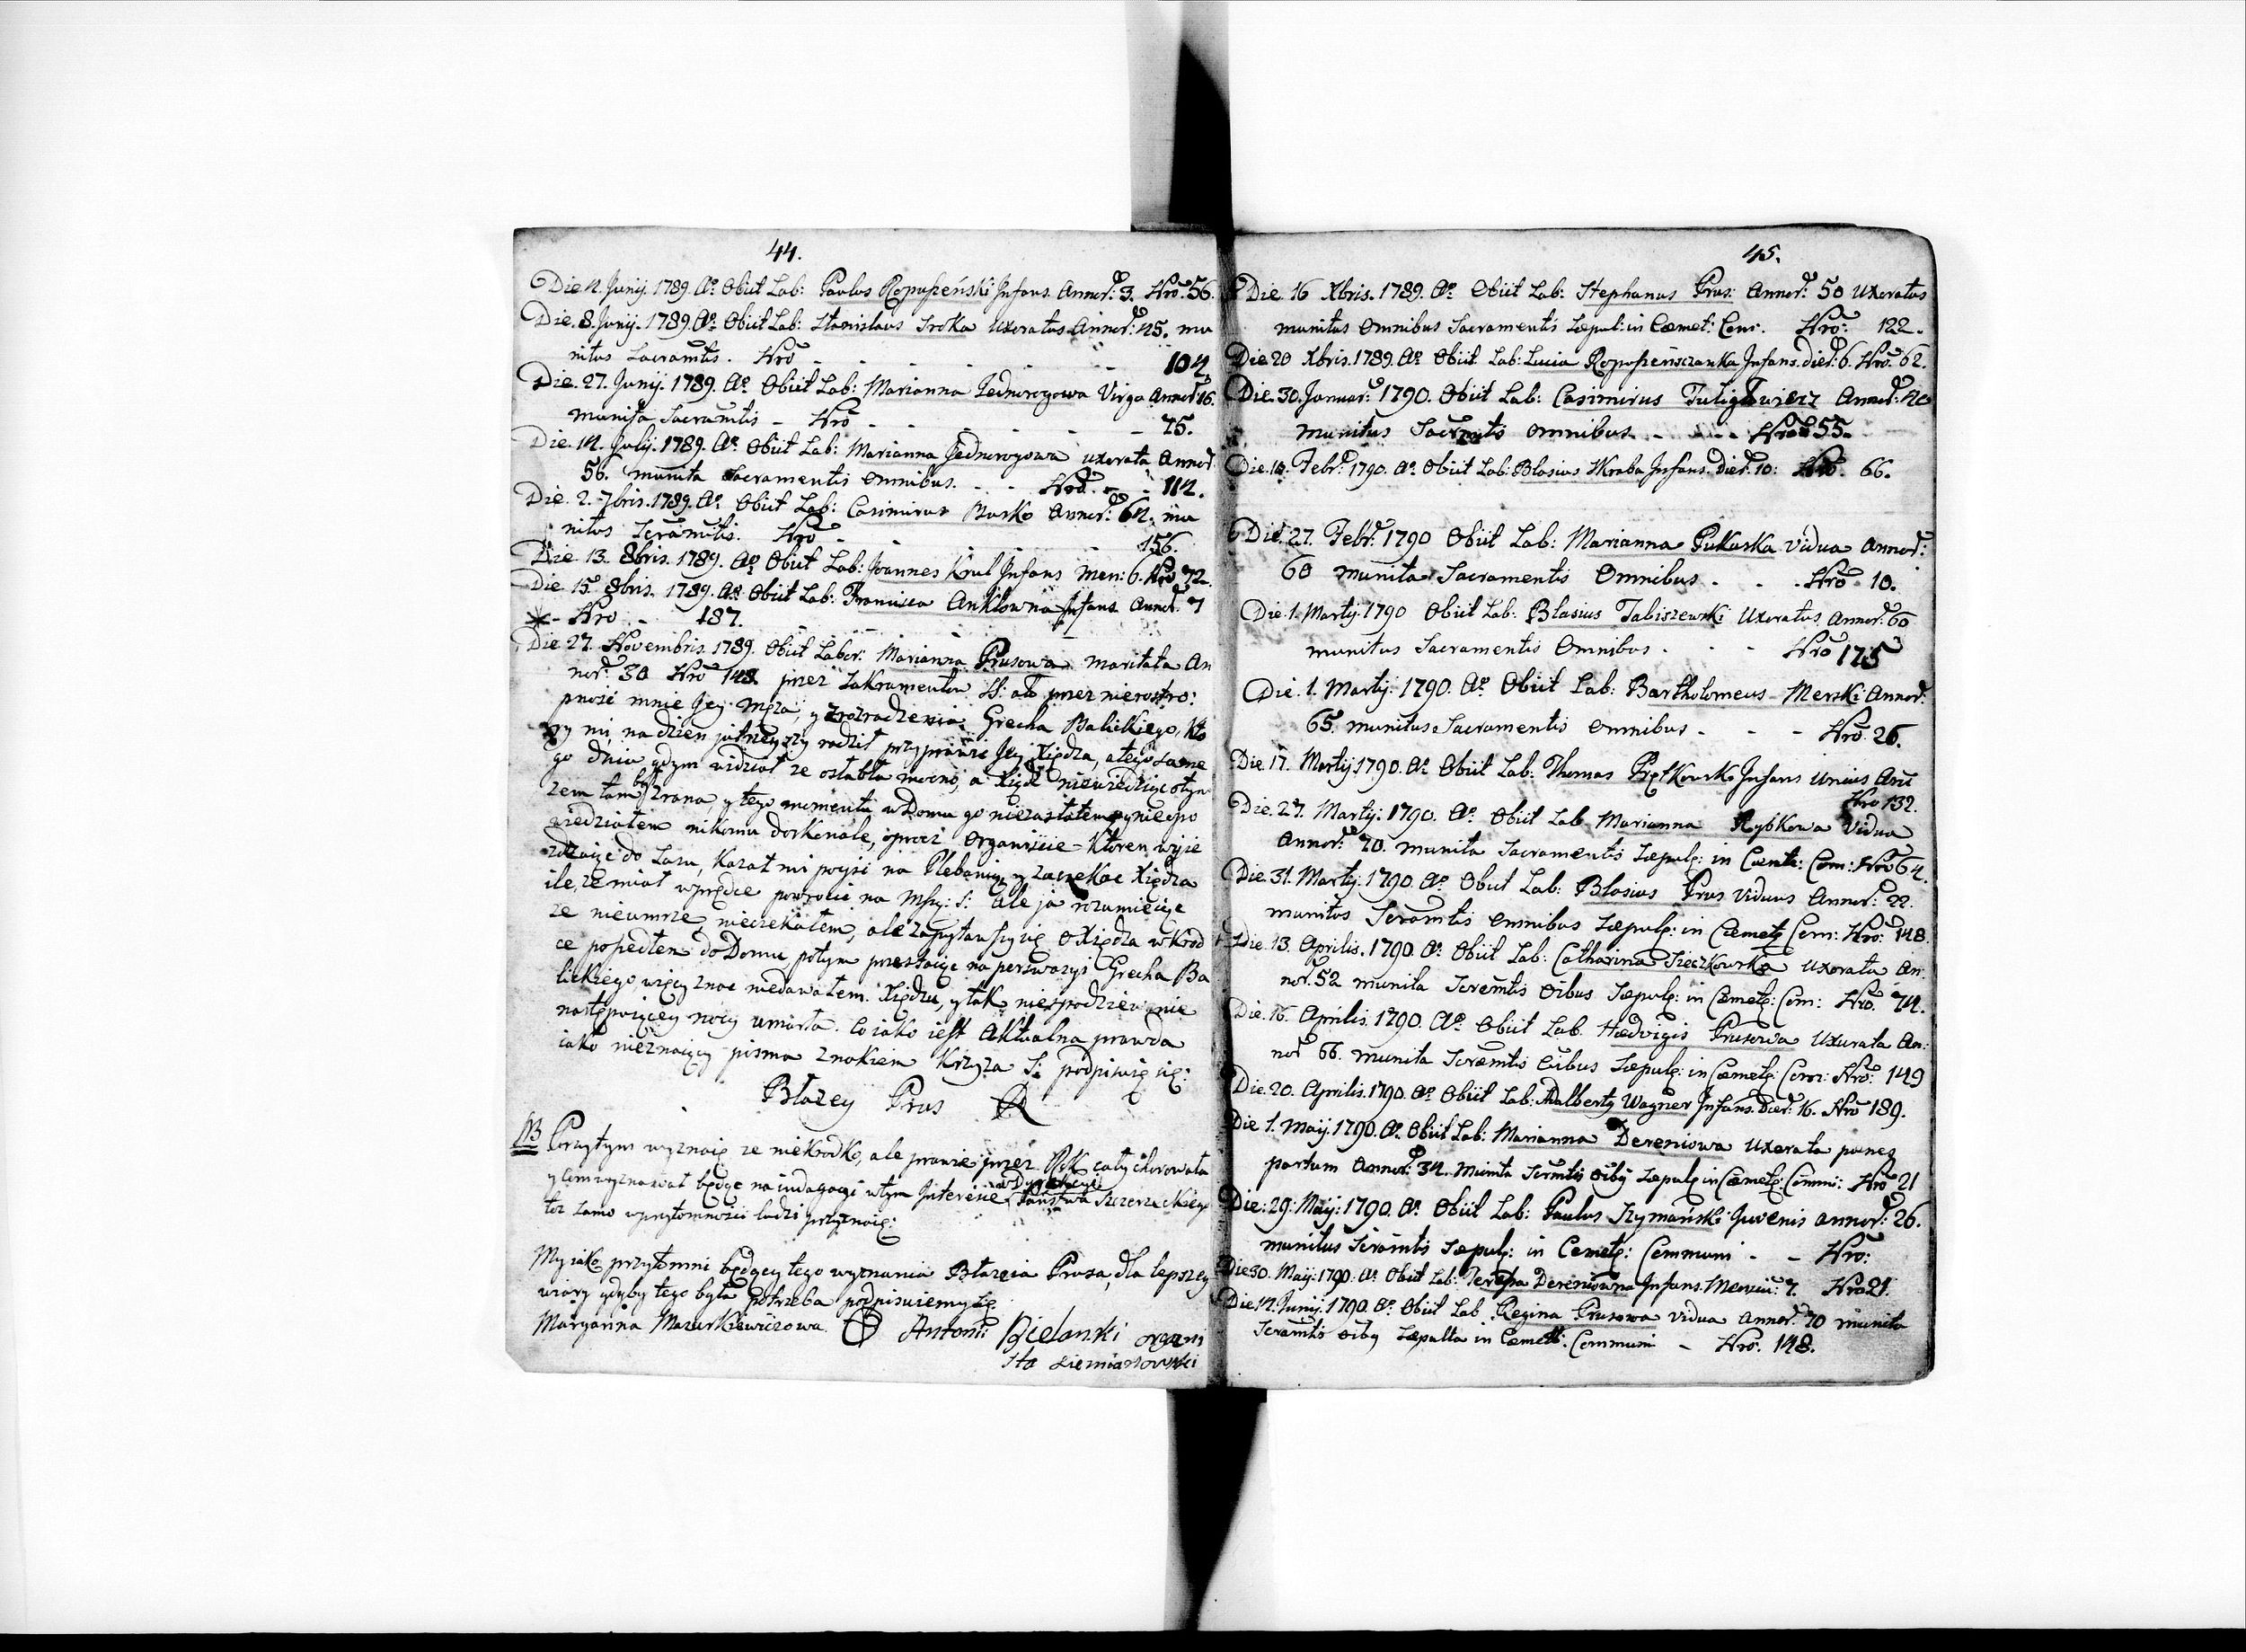 44.
Die 4. Junij. 1789. Ao. Obiit Lab: Paulus Infans. Annor: 3. Nro. 56.
Die. 8. Junij. 1789. Ao. Obiit Lab: Stanislaus Sroka Uxoratus Annor: 45. mu
nitus Sacramtis. Nro - - - - - 104.
Die. 27. Junij. 1789. Ao. Obiit Lab: Marianna Jednorogowa Virgo Annor 16.
munita Sacramtis - Nro - - - - - 75.
Die. 14. Julij. 1789. Ao. Obiit Lab: Marianna Jednorogowa uxorata Annor
56. munita Sacramentis omnibus. - - Nro. - - 114.
Die. 2. 7bris. 1789. Ao. Obiit Lab: Casimirus Annor: 64. mu
nitus Scramtis. Nro - - - - - 156.
Die. 13. 8bris. 1789. Ao Obiit Lab: Joannes Krul Infans Men: 6. Nro 72.
Die. 15. 8bris. 1789. Ao. Obiit Lab: Francisca Ankłowna Infans Annor. 7
- Nro - 187.
Die 27. Novembris. 1789. Obiit Labor: Marianna Prusowa maritata An
nor. 30 Nro 148. przez Sakramentow SS: ato przez nieostro:
pnosć mnie Jey Męża, y zrozradzenia Grecha Balickiego, kto
ry mi, na dzien jutrzeyszy radził przyprawic Jey Xiędza, a tego same
go dnia gdym widział ze osłabła mocno, a Xiądz niewiedząc otym
zem tam był zrana, y tego momentu w Domu go niezastałem, y niepo
wiedziałem nikomu doskonale, oprocz Organiscie - ktoren wyie
zdzaiąc do Lasu, Kazał mi poyść na Plebanią y zaczekac Xiędza
ile, ze miał wprędce powrocic na Mszą: S: ale ja rozumieiąc
ze nieumrze, nieczekałem, ale zapytawszy się o Xiędza wkrod
ce poszedłem do Domu potym przestaiąc na perswazyi Grecha Ba
lickiego więcy znac niedawałem Xiędzu, y tak niespodziewanie
następuiącey nocy umarła. Co iako iest Aktualna prawda
iako nieznaiący pisma znakiem Krzyża S: podpisuię się:
Błazey Prus
NB Przytym wyznaię ze niekrodko, ale prawie przez Rok cały chorowała
y com wyznawał będąc na indagacyi wtym Interesie w Dyspozycyi Państwa
toż samo w przytomności ludzi przyznaię:
My iako przytomni będący tego wyznania Błazeia Prusa, dla lepszey
wiary gdyby tego była potrzeba podpisuiemy się
Maryanna Mazurkiewiczowa. Antoni Bielanski organi
sta siemianowski
45.
Die. 16 Xbris. 1789. Ao Obiit Lab: Stephanus Prus: Annor: 50 Uxoratus
munitus Omnibus Sacramentis Sepul: in Cæmet: Com: Nro: 122.
Die 20 Xbris. 1789. Ao Obiit Lab: Lucia Infans. dier: 6. Nro. 62.
Die. 30. Januar: 1790. Obiit Lab: Casimirus Annor: 40
munitus Sacrmtis omnibus. - - - Nro 55.
Die. 10. Febr: 1790. Ao. Obiit Lab: Blasius Skraba Infans. Dier: 10: Nro. 66.
Die. 27. Febr: 1790 Obiit Lab: Marianna Pukaska Vidua Annor:
60 munita Sacramentis Omnibus. - - Nro 10.
Die. 1. Martij. 1790 Obiit Lab: Blasius Tabiszewski Uxoratus Annor: 60
munitus Sacramentis Omnibus - - - Nro 175
Die. 1. Martij: 1790. Ao Obiit Lab: Bartholomeus Merski Annor:
65. munitus Sacramentis omnibus - - - Nro. 26.
Die. 17. Martij 1790. Ao Obiit Lab: Thomas Infans Unius Ani
Nro 132.
Die. 27. Martij: 1790. Ao. Obiit Lab Marianna Rybkowa Vidua
Annor: 70. munita Sacramentis Sepulp: in Cæmt: Com: Nro 64.
Die. 31. Martij. 1790. Ao. Obiit Lab: Blasius Prus Viduus Annor: 22.
munitus Scramtis omnibus Sepulp: in Cæmetp Com: Nro: 148.
Die. 13. Aprilis. 1790. Ao. Obiit Lab: Catharina Sieczkowska Uxorata An:
nor. 52 munita Scremtis Oibus Sepulp: in Cæmetp: Com: Nro. 74.
Die. 16. Aprilis. 1790. Ao. Obiit Lab. Hedvigis Prusowa Uxurata An:
nor 66. munita Scremtis Oibus Sepulp: in Cæmetp: Com: Nro: 149
Die. 20. Aprilis. 1790. Ao. Obiit Lab: Adalberty Wagner Infans. Dier: 16. Nro 189.
Die 1. Maij. 1790. Ao. Obiit Lab: Marianna Dereniowa Uxorata penes
partum Annor: 34. Munita Scrmtis Oiby Sepulp in Cæmetp: Commu: Nro 21
Die: 29: Maij: 1790. Ao. Obiit Lab: Paulus Szymański Juvenis annor: 26.
munitus Scramtis Sepulp: in Cemetp: Communi - - Nro:
Die 30. Maij: 1790. Ao. Obiit Lab: Teressa Dereniowna Infans. Mensiu: 7. Nro 21.
Die 12. Junij. 1790. Ao. Obiit Lab. Regina Prusowa Vidua Annor: 70 munita
Scramtis Oiby Sepulta in Cæmett: Communi - Nro. 148.